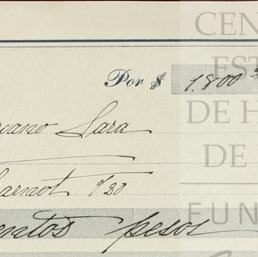 CEN
EST
Por $ 1.800
DE H
riano Lara
DE
Carnot 1/20
FUN
entos pesos